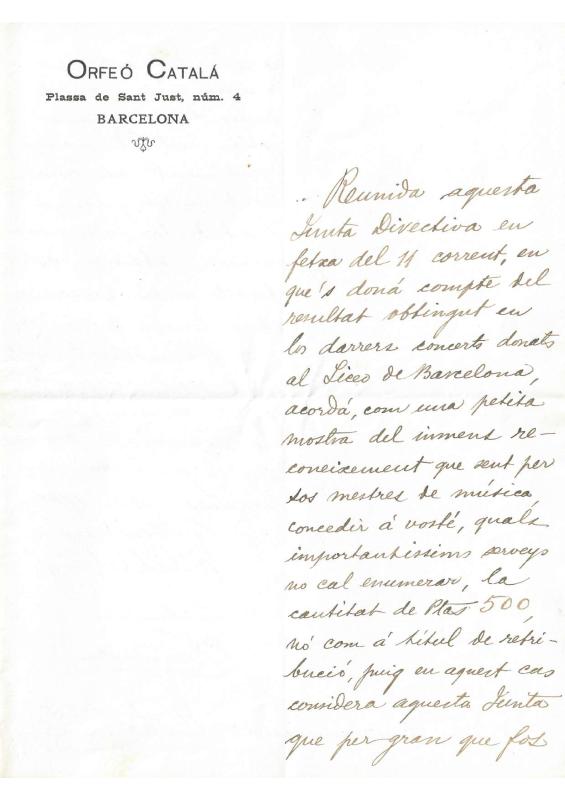 ORFEÓ CATALÁ
Plassa de Sant Just, núm. 4
BARCELONA
.. Reunida aquesta
Junta Directiva en
fetxa del 11 corrent, en
que's doná compte del
resultat obtingut en
los darrers concerts donats
al Liceo de Barcelona,
acordá, com una petita
mostra del inmens re-
coneixement que sent per
sos mestres de música,
concedir á vosté, quals
importantissims serveys
no cal enumerar, la
cantitat de Ptas 500,
nó com á títul de retri-
bució, puig en aquest cas
considera aquesta Junta
que per gran que fos